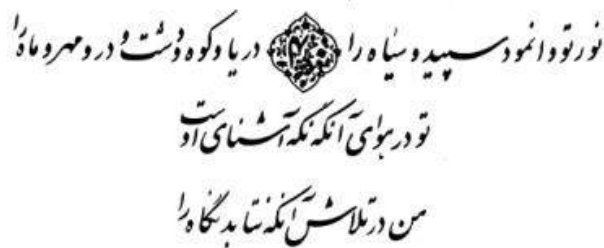 نور تو وا نمود سپید و سیاه را دریا و کوه و دشت و در و مهر و ماه را
تو در هوای آنکه نگه آشنای اوست
من در تلاش آنکه نتابد نگاه را